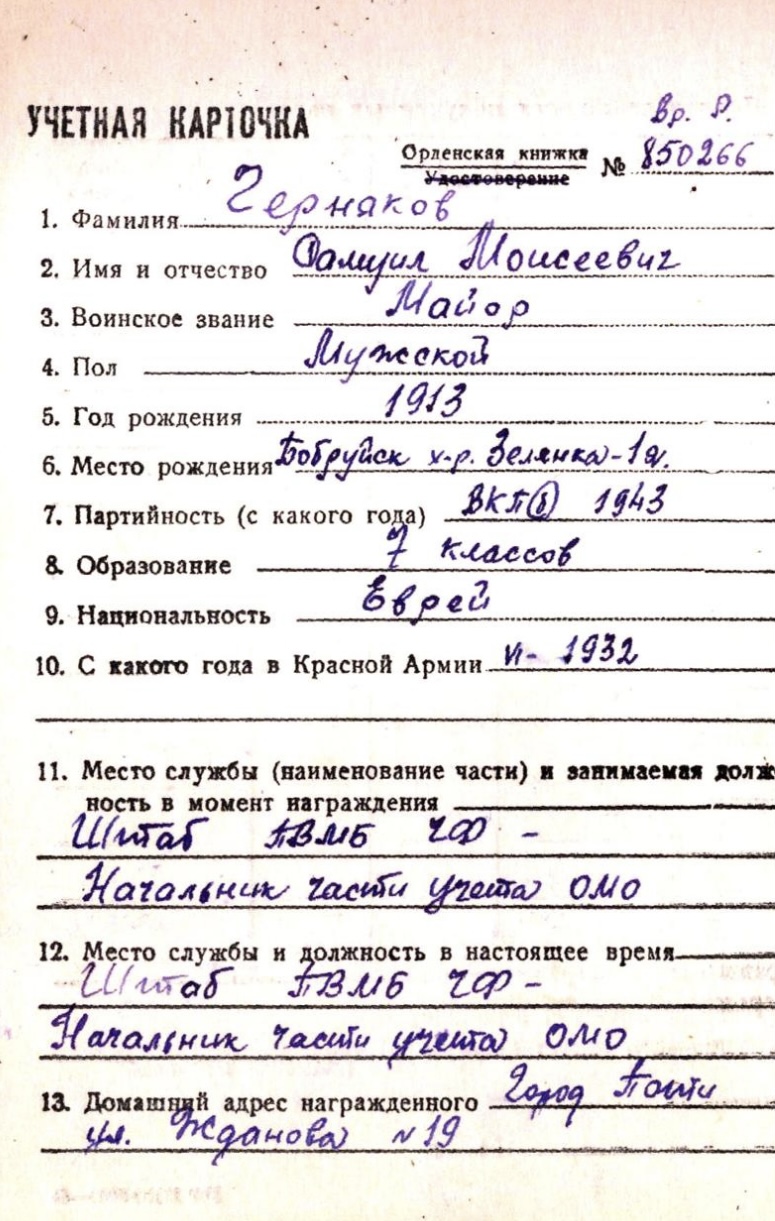 Вр. Р.
УЧЕТНАЯ КАРТОЧКА
Орденская книжка № 850266
Удостоверение
1. Фамилия Черняков
2. Имя и отчество Самуил Моисеевич
3. Воинское звание Майор
4. Пол Мужской
5. Год рождения 1913
6. Место рождения Бобруйск х-р. Зелянка-1я.
7. Партийность (с какого года) ВКП(б) 1943
8. Образование 7 классов
9. Национальность Еврей
10. С какого года в Красной Армии VI- 1932
11. Место службы (наименование части) и занимаемая долж
ность в момент награждения
Штаб ПВМБ ЧФ -
Начальник части учета ОМО
12. Место службы и должность в настоящее время
Штаб ПВМБ ЧФ -
Начальник части учета ОМО
13. Домашний адрес награжденного Город Поти
ул. Жданова №19